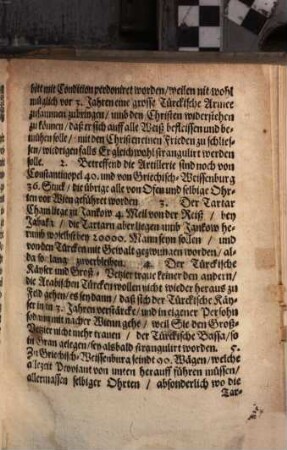 bitt mit Condition perdoniret worden / weilen nit wohl
müglich vor 3. Jahren eine grosse Türckische Armee
zusammen zubringen / und den Christen widerstehen
zu können / daß er sich auff alle Weiß befleissen und be-
mühen solle / mit den Christen einen Frieden zu schlies-
sen / widrigen falls Er gleichwohl strangulirt werden
solle. 2. Betreffend die Artillerie sind noch von
Constantinopel 40. und von Griechisch-Weissenburg
36. Stuck / die übrige alle von Ofen und selbige Ohr-
ten vor Wien geführet worden 3. Der Tartar
Cham lige zu Jankow 4. Meil von der Reiß / bey
/ die Tartarn aber ligen umb Jankow he-
rumb welche bey 20000. Mann seyn sollen / und
von den Türcken mit Gewalt gezwungen worden / al-
da so lang zuverbleiben. 4. Der Türckische
Käyser und Groß-Vezier traue keiner den andern /
die Arabischen Türcken wollen nicht wieder heraus zu
Feld gehen / es sey dann / daß sich der Türckische Käy-
ser in 3. Jahren verstärcke / und in eigener Persohn
sodann mit nacher Wienn gehe / weil Sie den Groß-
Vezier nicht mehr trauen / der Türckische Bassa / so
in Gran gelegen / sey alsbald strangulirt worden. 5.
Zu Griechisch-Weissenburg seindt 90. Wägen / welche
alezeit Proviant von unten herauff führen müssen /
allermassen selbiger Ohrten / absonderlich wo die
Tar-